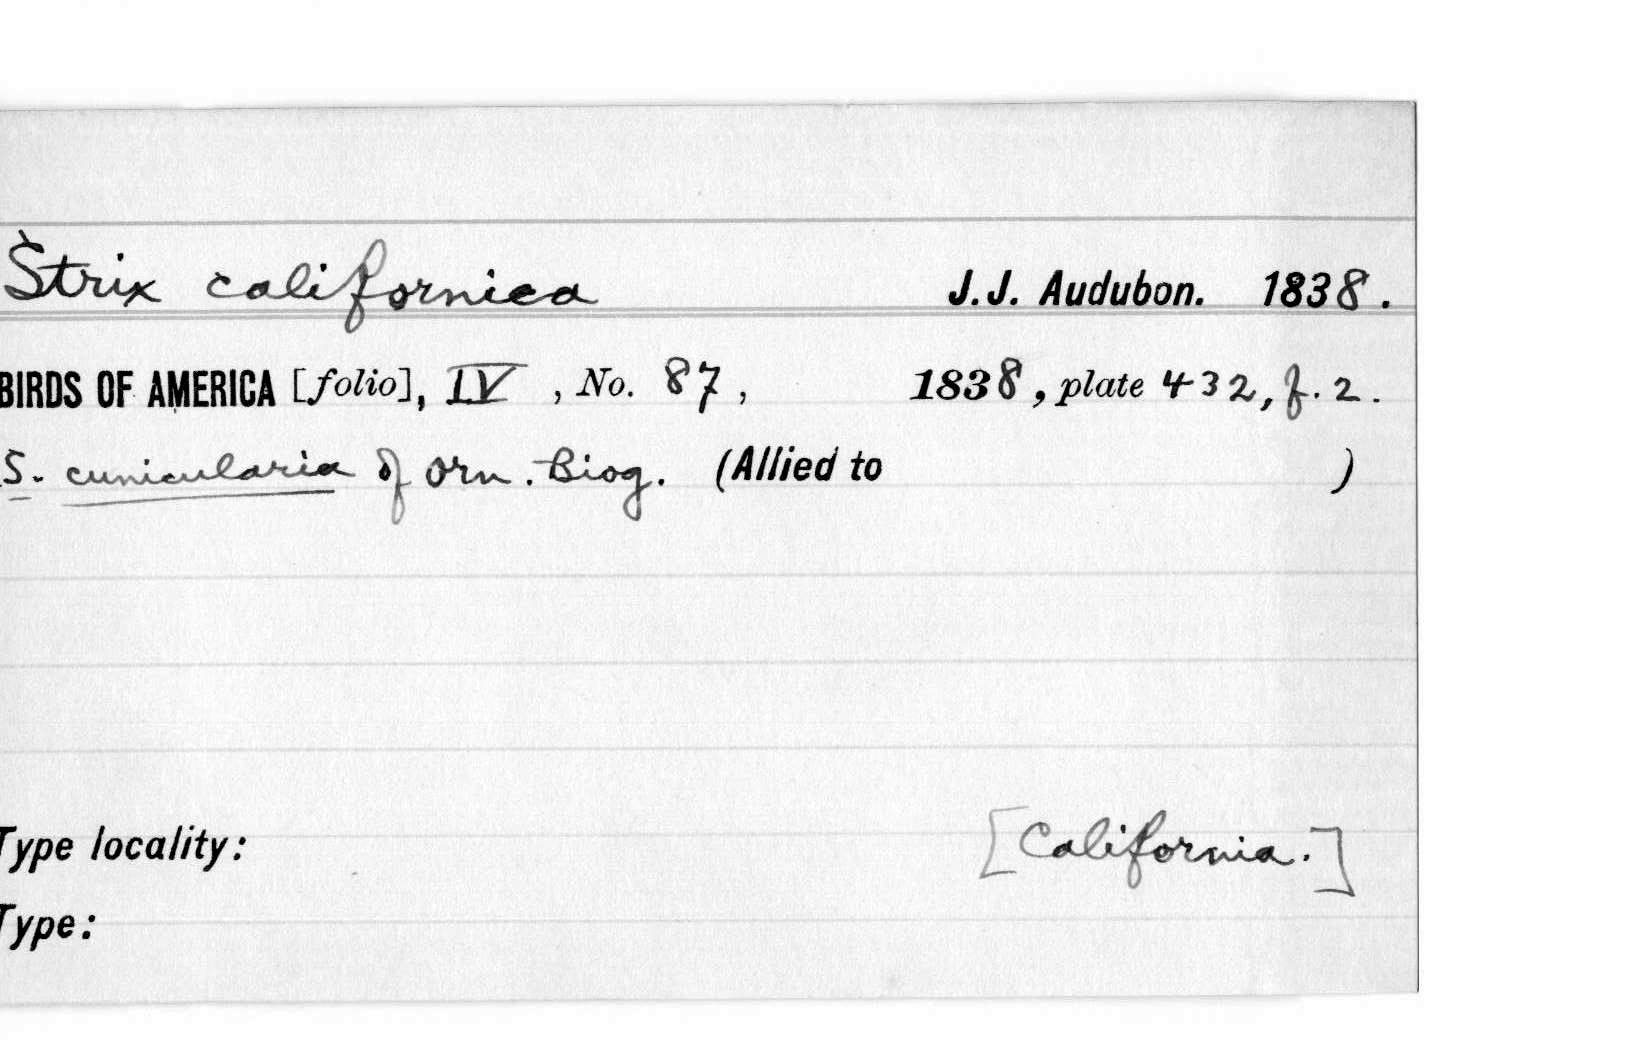 Strix californica J.J. Audubon. 1838.
BIRDS OF AMERICA [folio], IV, No. 87, 1838, plate 432, f. 2.
S. cunicularia of Orn. Biog. (Allied to )
Type locality: [California.]
Type: